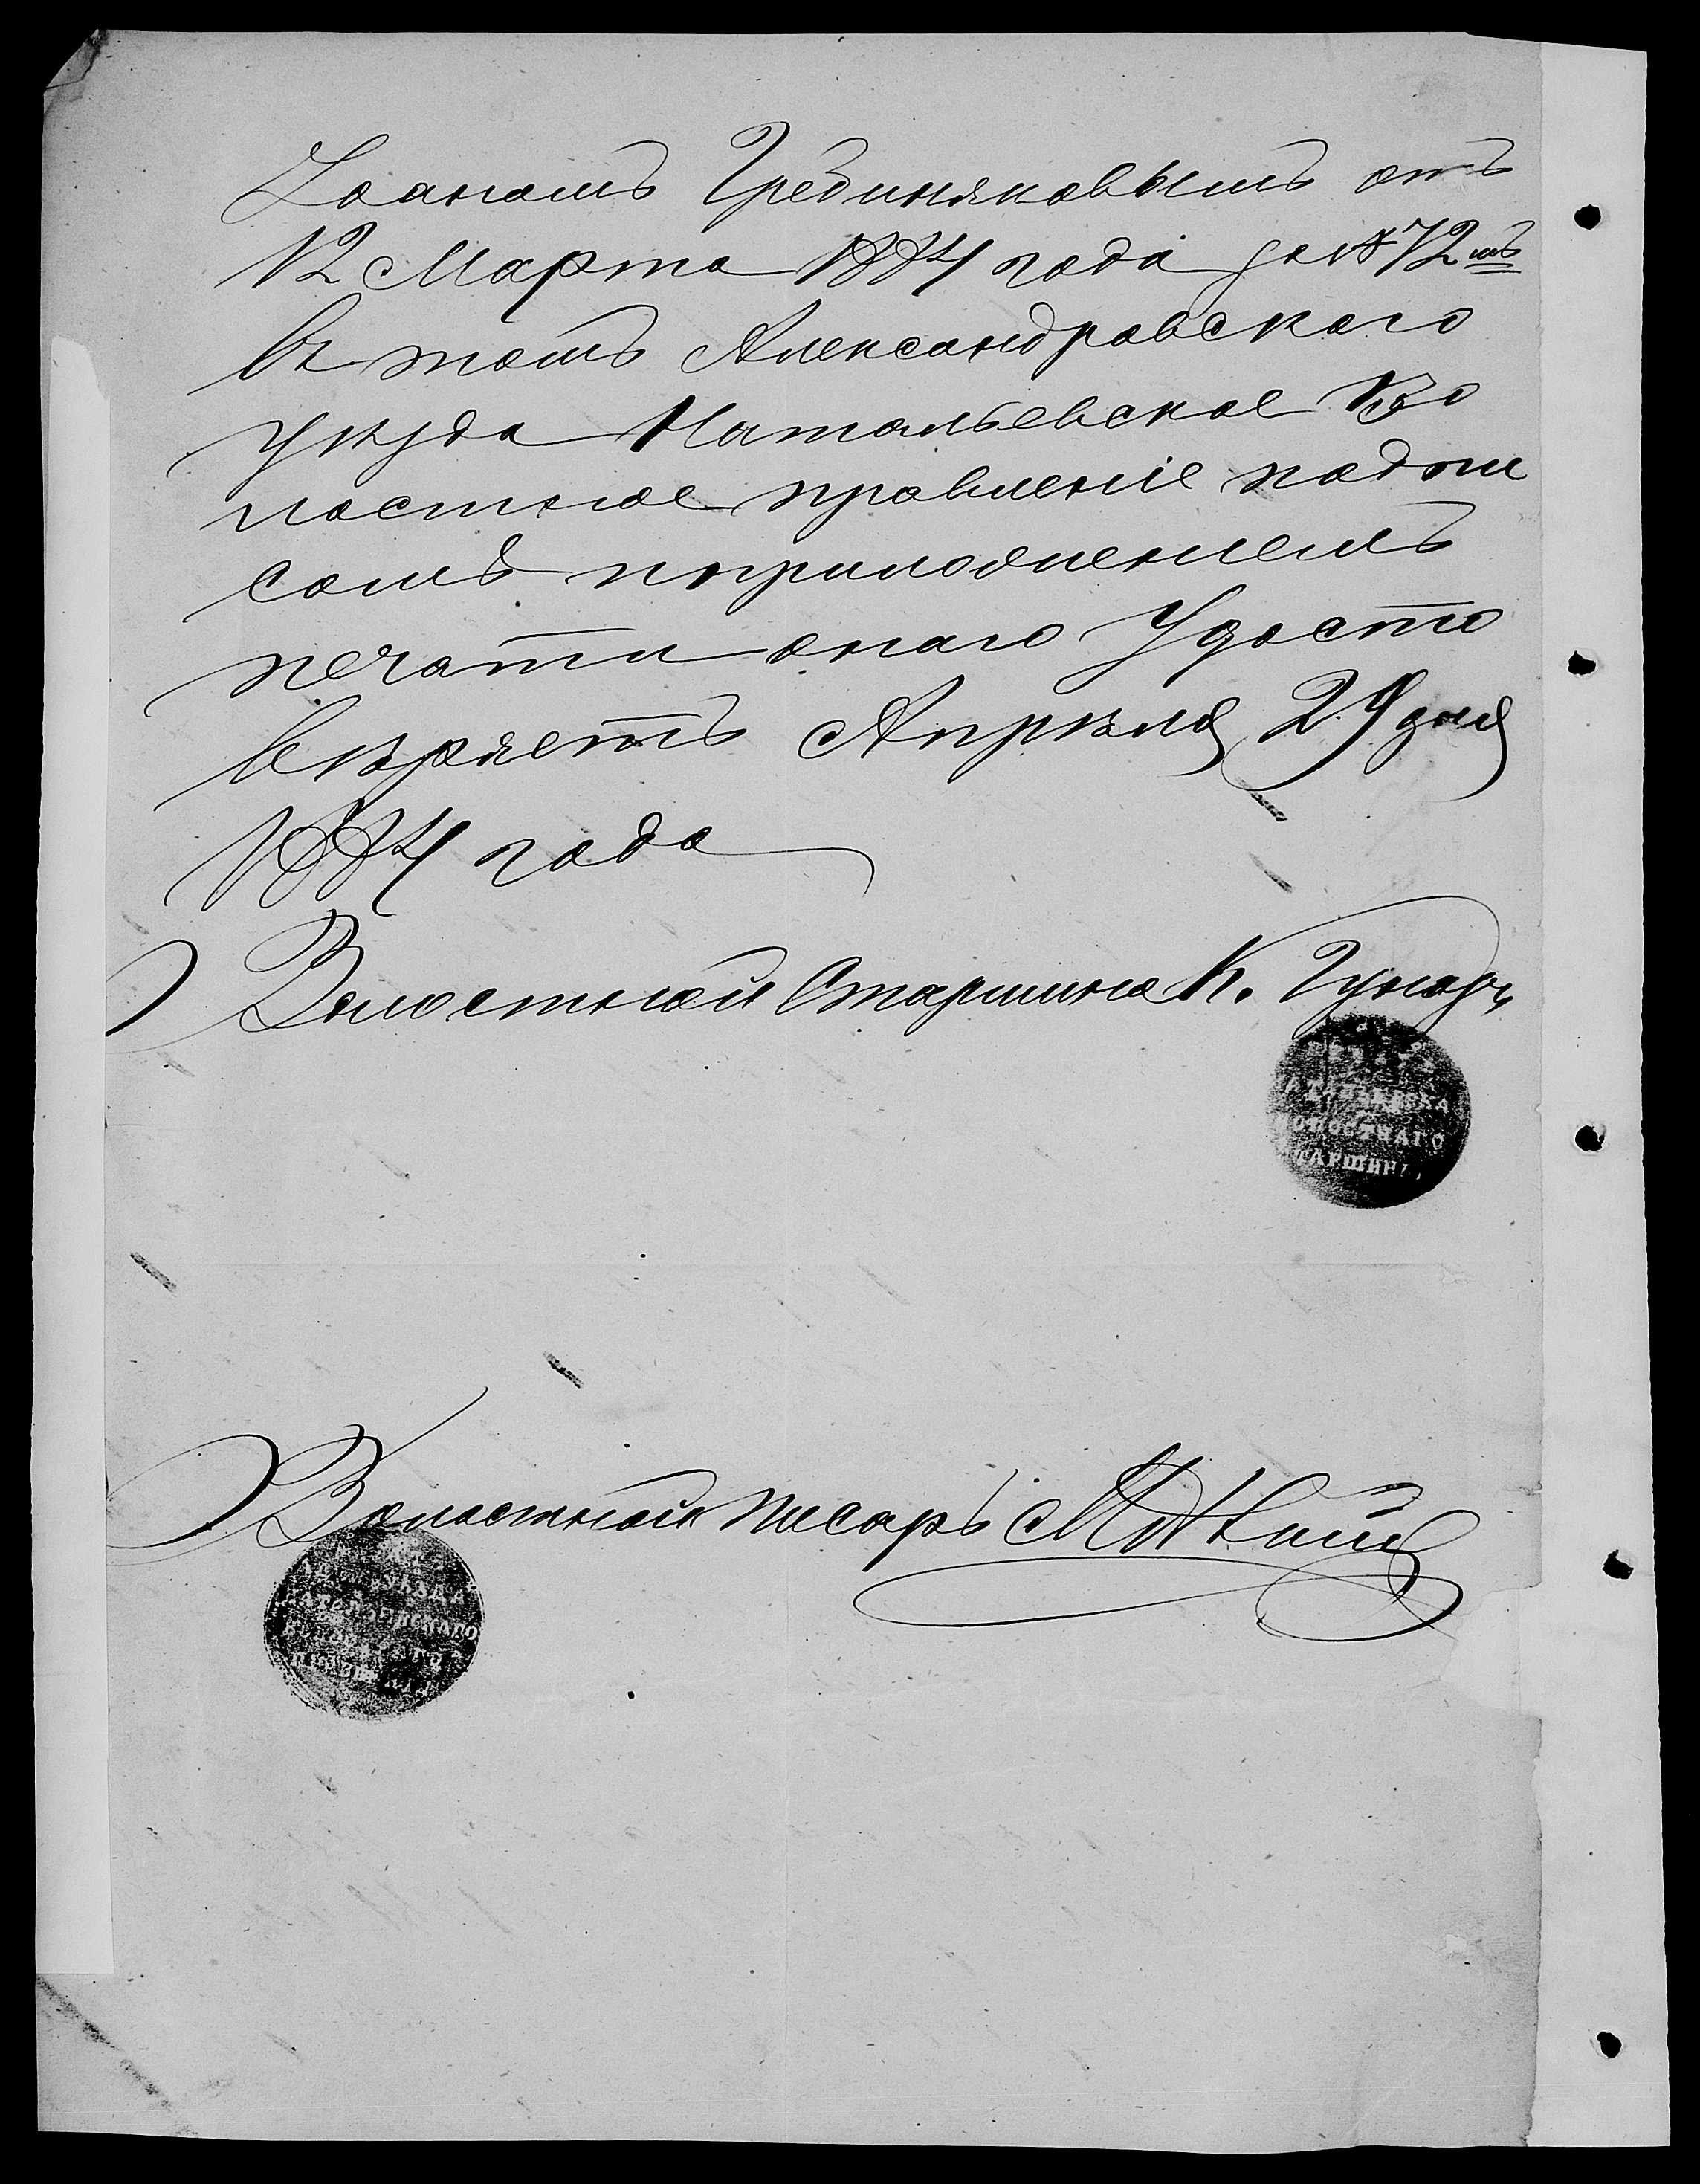 Іоаномъ Гребиняковымъ отъ
12 Марта 1884 года за № 72мъ
въ томъ Александровского
уѣзда Натальевское Во
лостное правленіе подпи
сомъ приложениемъ
печати онаго Удосто
вѣряетъ Апрѣля 29 дня
1884 года
Волостной Старшина К.
ВОЛОСТНАГО
СТАРШИНЫ
Волостной писарь
УѢЗДА